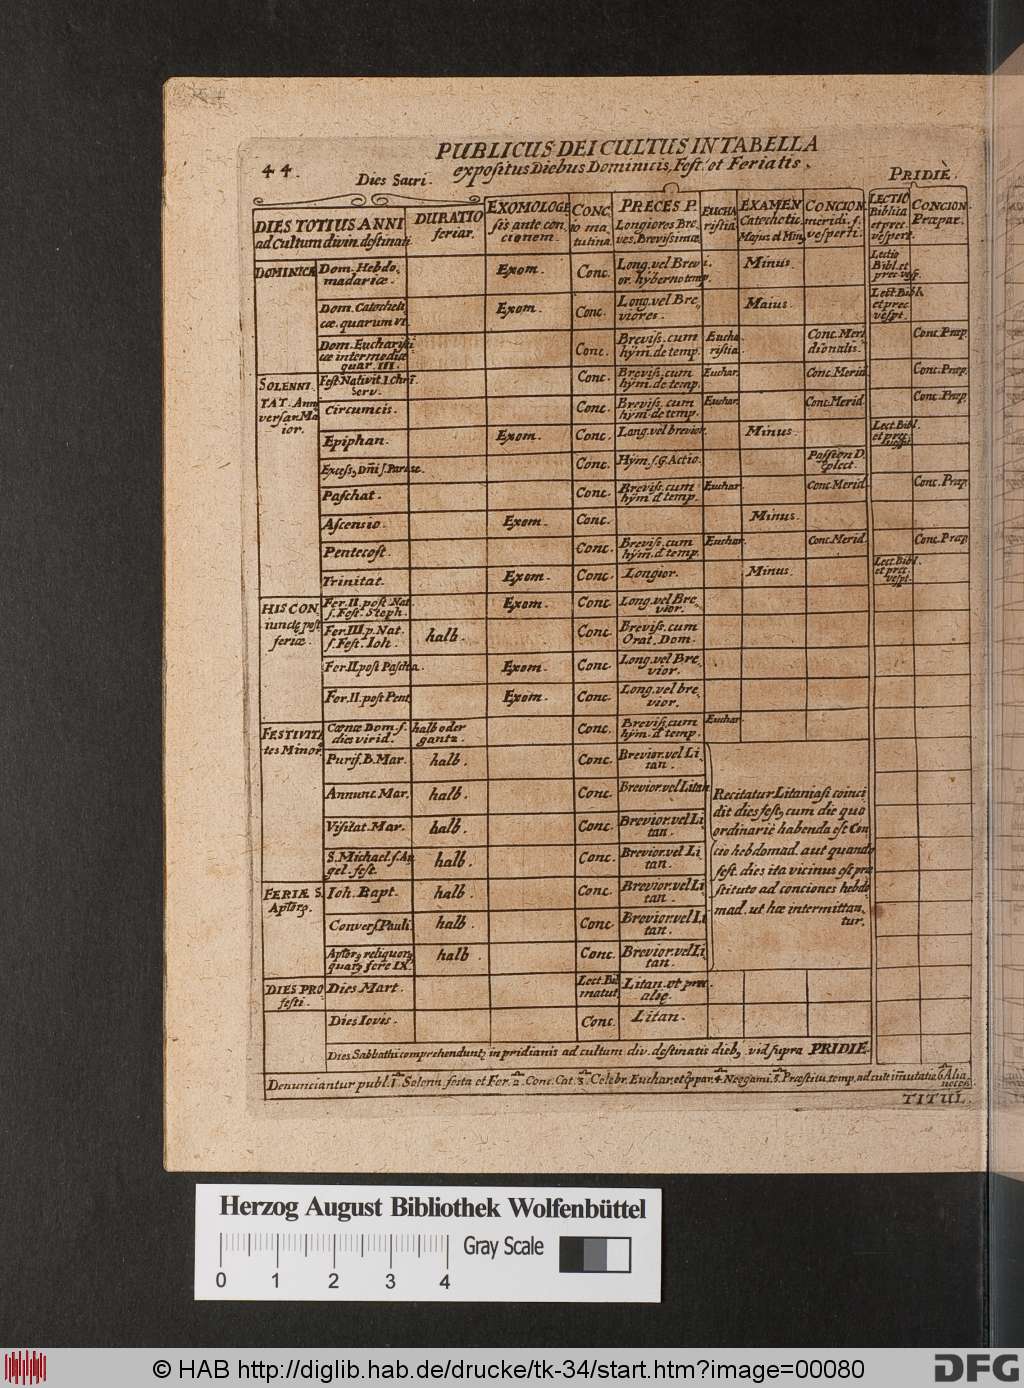 PUBLICUS DEI CULTUS IN TABELLA
44.
expositus Diebus Dominicis, Fest. et Feriatis.
Dies Sacri.
PRIDIÈ.
DIES TOTIUS ANNI ad Cultum divin. destinati
DURATIO feriar.
EXOMOLOGE sis ante con cionem.
CONC. io ma tutina.
PRECES P. Longiores Bre, ves, Brevissimæ
EUCHA ristia
EXAMEN Catechetic. Majus et Min.
CONCION. meridi. s. vesperti.
LECTIO Biblia et prec vespert.
CONCION. Præpar.
DOMINICÆ Dom. Hebdo, madariæ. Exom. Conc. Long. vel Brevi. or. hyberno temp. Minus. Lectio Bibl. et prec. vesp.
Dom. Catecheti cæ. quarum VI. Exom. Conc. Long. vel Bre, viores. Maius. Lect. Bibl. et prec vespt.
Dom. Eucharisti cæ intermediæ quar. III. Conc. Breviss. cum hym. de temp. Eucha ristia. Conc. Meri dionalis. Conc. Præp.
SOLENNI. TAT. Anni versar. Ma ior. Fest. Nativit. I. Chri serv. Conc. Breviss. cum hym. de temp. Euchar. Conc. Merid. Conc. Præp.
Circumcis. Conc. Breviss. cum hym. de temp. Euchar. Conc. Merid. Conc. Præp
Epiphan. Exom. Conc. Long. vel brevior. Minus. Lect. Bibl. et prec. vespt
Conc. Hym. s. G. Actio. Passion D.
Paschat. Conc. Breviss. cum hym. d temp. Euchar. Conc. Merid. Conc. Præp
Ascensio. Exom. Conc. Minus.
Pentecost. Conc. Breviss. cum hym. d temp. Euchar. Conc. Merid. Conc. Præp
Trinitat. Exom. Conc. Longior. Minus. Lect. Bibl. et prec. vespt.
HIS CON, iunctę post feriæ. Fer. II. post Nat. s. Fest. Steph. Exom. Conc. Long. vel Bre, vior.
Fer. III. p. Nat. s. Fest. Ioh. halb. Conc. Breviss. cum Orat. Dom.
Fer. II. post Pascha. Exom. Conc. Long. vel Bre, vior.
Fer. II. post Pent. Exom. Conc. Long. vel bre, vior.
FESTIVITA tes Minor. Cœnæ Dom. s. dies virid. halb oder gantz. Conc. Breviss. cum hym. d temp. Euchar.
Purif. B. Mar. halb. Conc. Brevior. vel Li, tan.
Annunc. Mar. halb. Conc. Brevior. vel Litan
Visitat. Mar. halb. Conc. Brevior. vel Li, tan.
S. Michael. s. An gel. fest. halb. Conc. Brevior. vel Li, tan.
Recitatur Litania si coinci
dit dies fest, cum die quo
ordinariè habenda est Con
cio hebdomad. aut quando
fest. dies ita vicinus est præ
stituto ad conciones hebdo
mad. ut hæ intermittan,
tur.
FERIÆ S. Aptorꝫ. Ioh. Bapt. halb. Conc. Brevior. vel Li tan.
Convers. Pauli. halb. Conc Brevior. vel Li tan.
Aptorꝫ reliquorꝫ quarꝫ fere IX. halb. Conc. Brevior. vel Li, tan.
DIES PRO festi. Dies Mart. Lect. Bib. matut. Litan. vt præ
Dies Iovis. Conc. Litan.
Dies Sabbathi comprehenduntꝫ in pridianis ad cultum div. destinatis diebꝫ vid supra PRIDIE.
Denunciantur publ. 1. Solenn. festa et Fer. 2. Conc. Cat. 3. Celebr. Euchar. et ppar. 4. Neogami. 5. Præstitu. temp. ad cult imutatio 6 Alia necess.
TITUL.
Herzog August Bibliothek Wolfenbüttel
Gray Scale
0 1 2 3 4
© HAB http://diglib.hab.de/drucke/tk-34/start.htm?image=00080
DFG